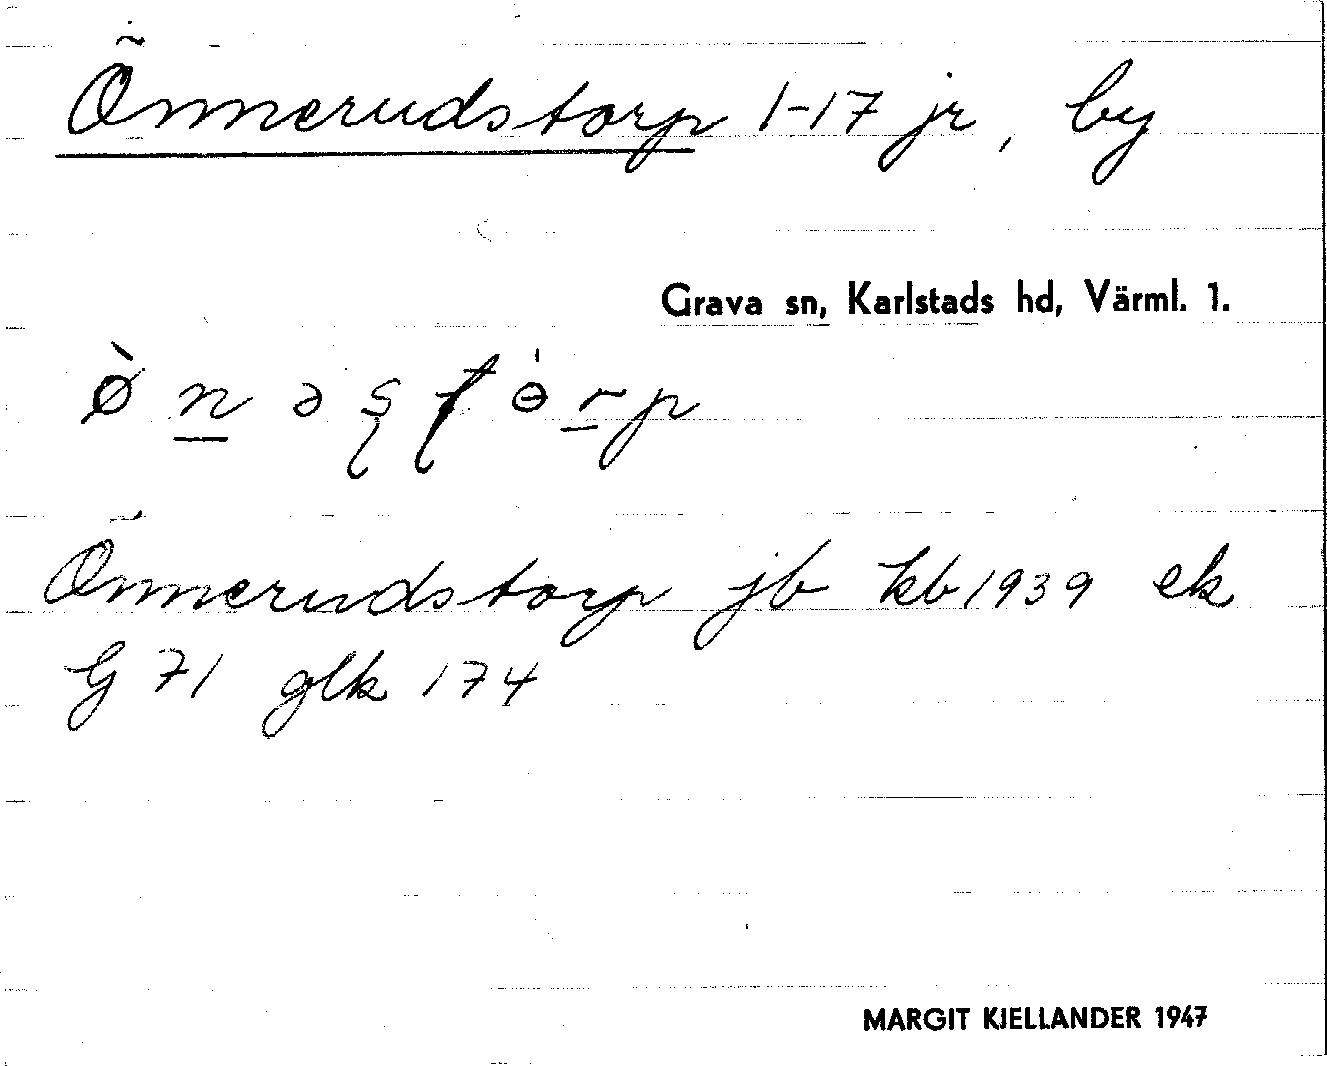 Önnerudstorp 1-17 jr, by
Grava sn, Karlstads hd, Värml. 1.
ø̀ n̲ ə ʂ ʈ ɵ̍ r̲ p
Önnerudstorp jb kb 1939 ek
G 71 glk 174
MARGIT KJELLANDER 1947